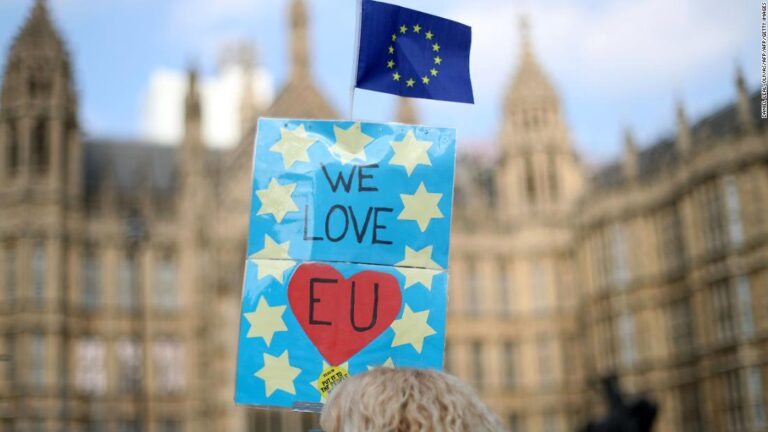 WE
LOVE
EU
DANIEL LEAL-OLIVAS/AFP/AFP/GETTY IMAGES